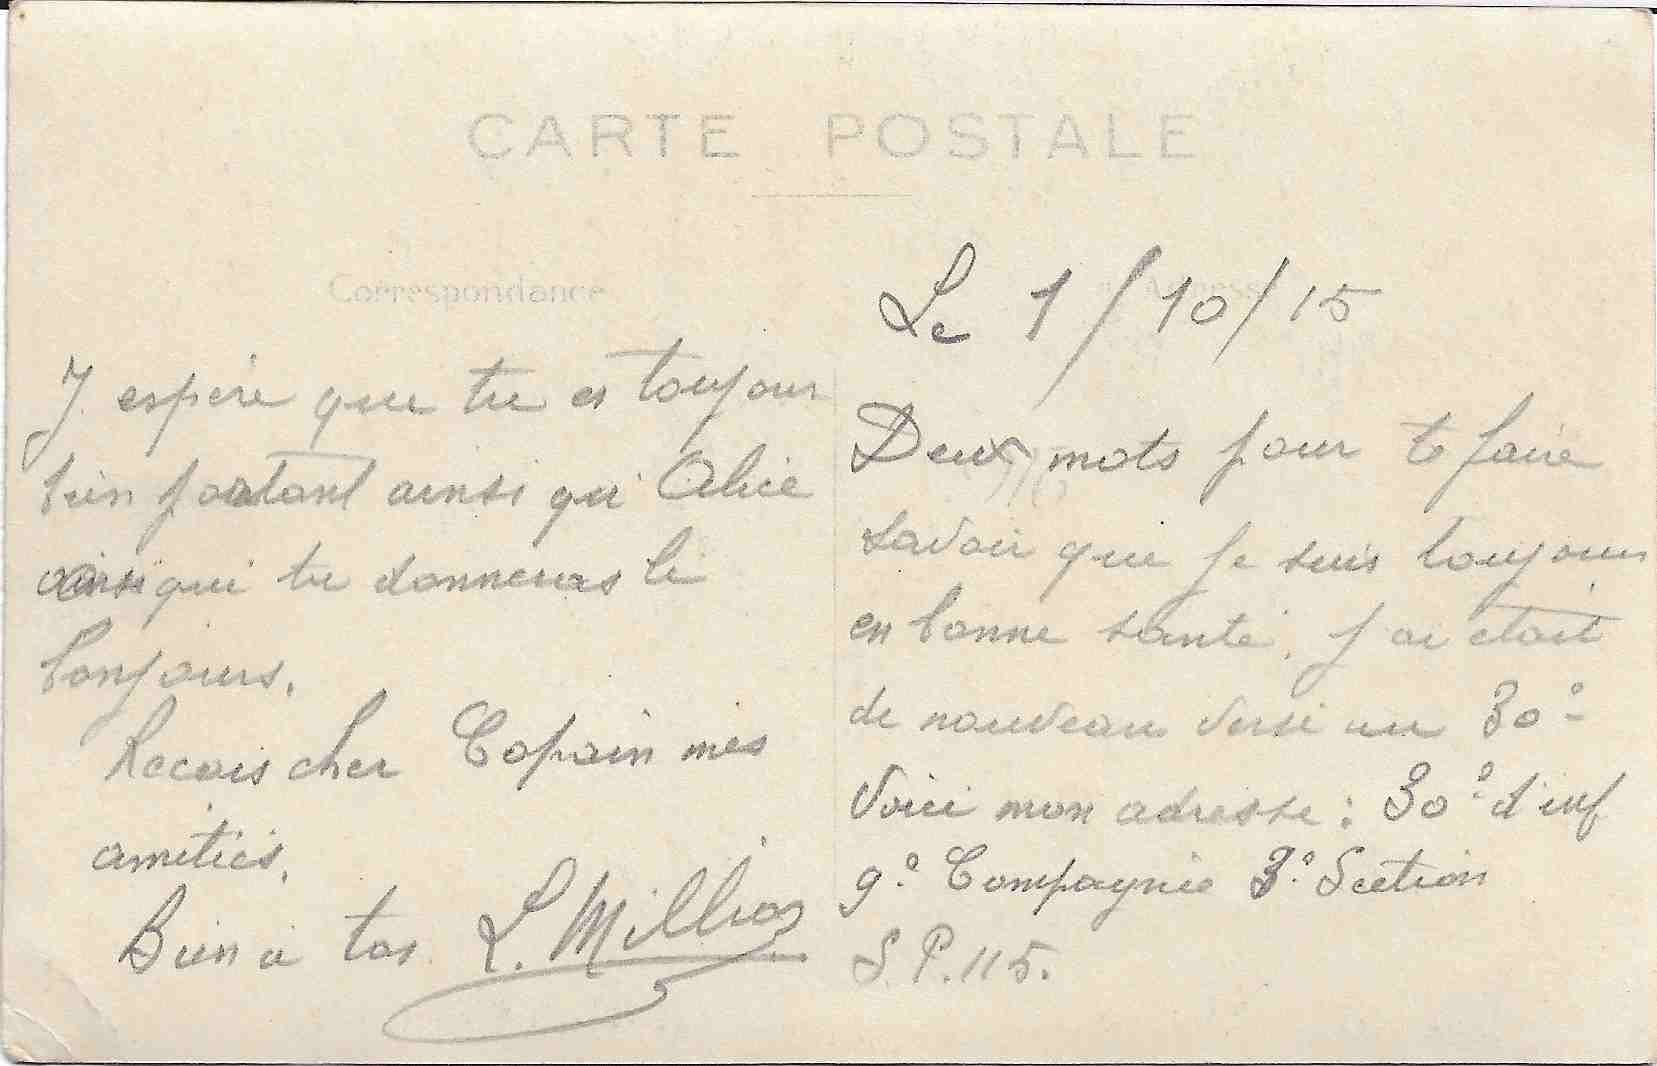 CARTE POSTALE
Correspondance
Adresse
Le 1/10/15
Deux mots pour te faire
savoir que je suis toujours
en bonne santé, j'ai était
de nouveau versé au 30e
Voici mon adresse : 30e d'inf
9e Compagnie 3e Section
S.P. 115.
J espère que tu es toujour
bien portant ainsi qu' Alice
ainsi qui tu donneras le
bonjours.
Recois cher Copain mes
amitiés.
Bien à toi L. Millioz